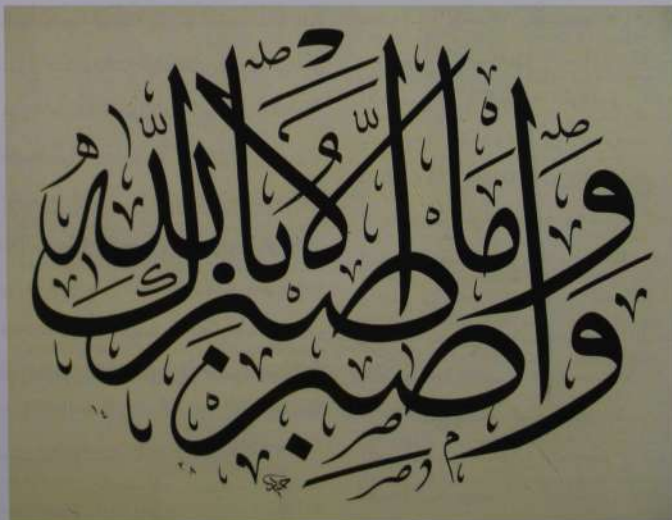 وَاصْبِرْ وَمَا صَبْرُكَ إِلَّا بِاللَّهِ
١٤ ٢٨